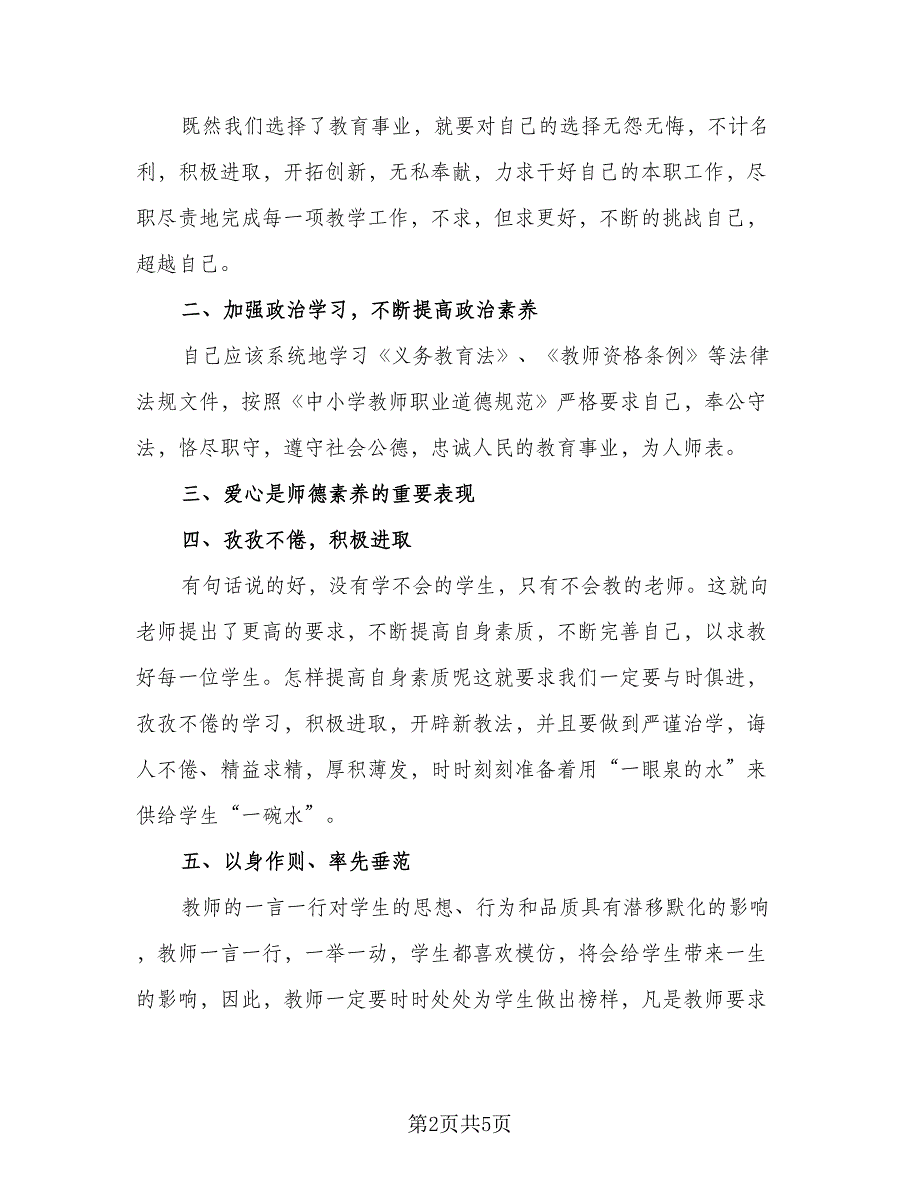 既然我们选择了教育事业，就要对自己的选择无怨无悔，不计名
利，积极进取，开拓创新，无私奉献，力求干好自己的本职工作，尽
职尽责地完成每一项教学工作，不求，但求更好，不断的挑战自己，
超越自己。
二、加强政治学习，不断提高政治素养
自己应该系统地学习《义务教育法》、《教师资格条例》等法律
法规文件，按照《中小学教师职业道德规范》严格要求自己，奉公守
法，恪尽职守，遵守社会公德，忠诚人民的教育事业，为人师表。
三、爱心是师德素养的重要表现
四、孜孜不倦，积极进取
有句话说的好，没有学不会的学生，只有不会教的老师。这就向
老师提出了更高的要求，不断提高自身素质，不断完善自己，以求教
好每一位学生。怎样提高自身素质呢这就要求我们一定要与时俱进，
孜孜不倦的学习，积极进取，开辟新教法，并且要做到严谨治学，诲
人不倦、精益求精，厚积薄发，时时刻刻准备着用“一眼泉的水”来
供给学生“一碗水”。
五、以身作则、率先垂范
教师的一言一行对学生的思想、行为和品质具有潜移默化的影响
，教师一言一行，一举一动，学生都喜欢模仿，将会给学生带来一生
的影响，因此，教师一定要时时处处为学生做出榜样，凡是教师要求
第2页共5页